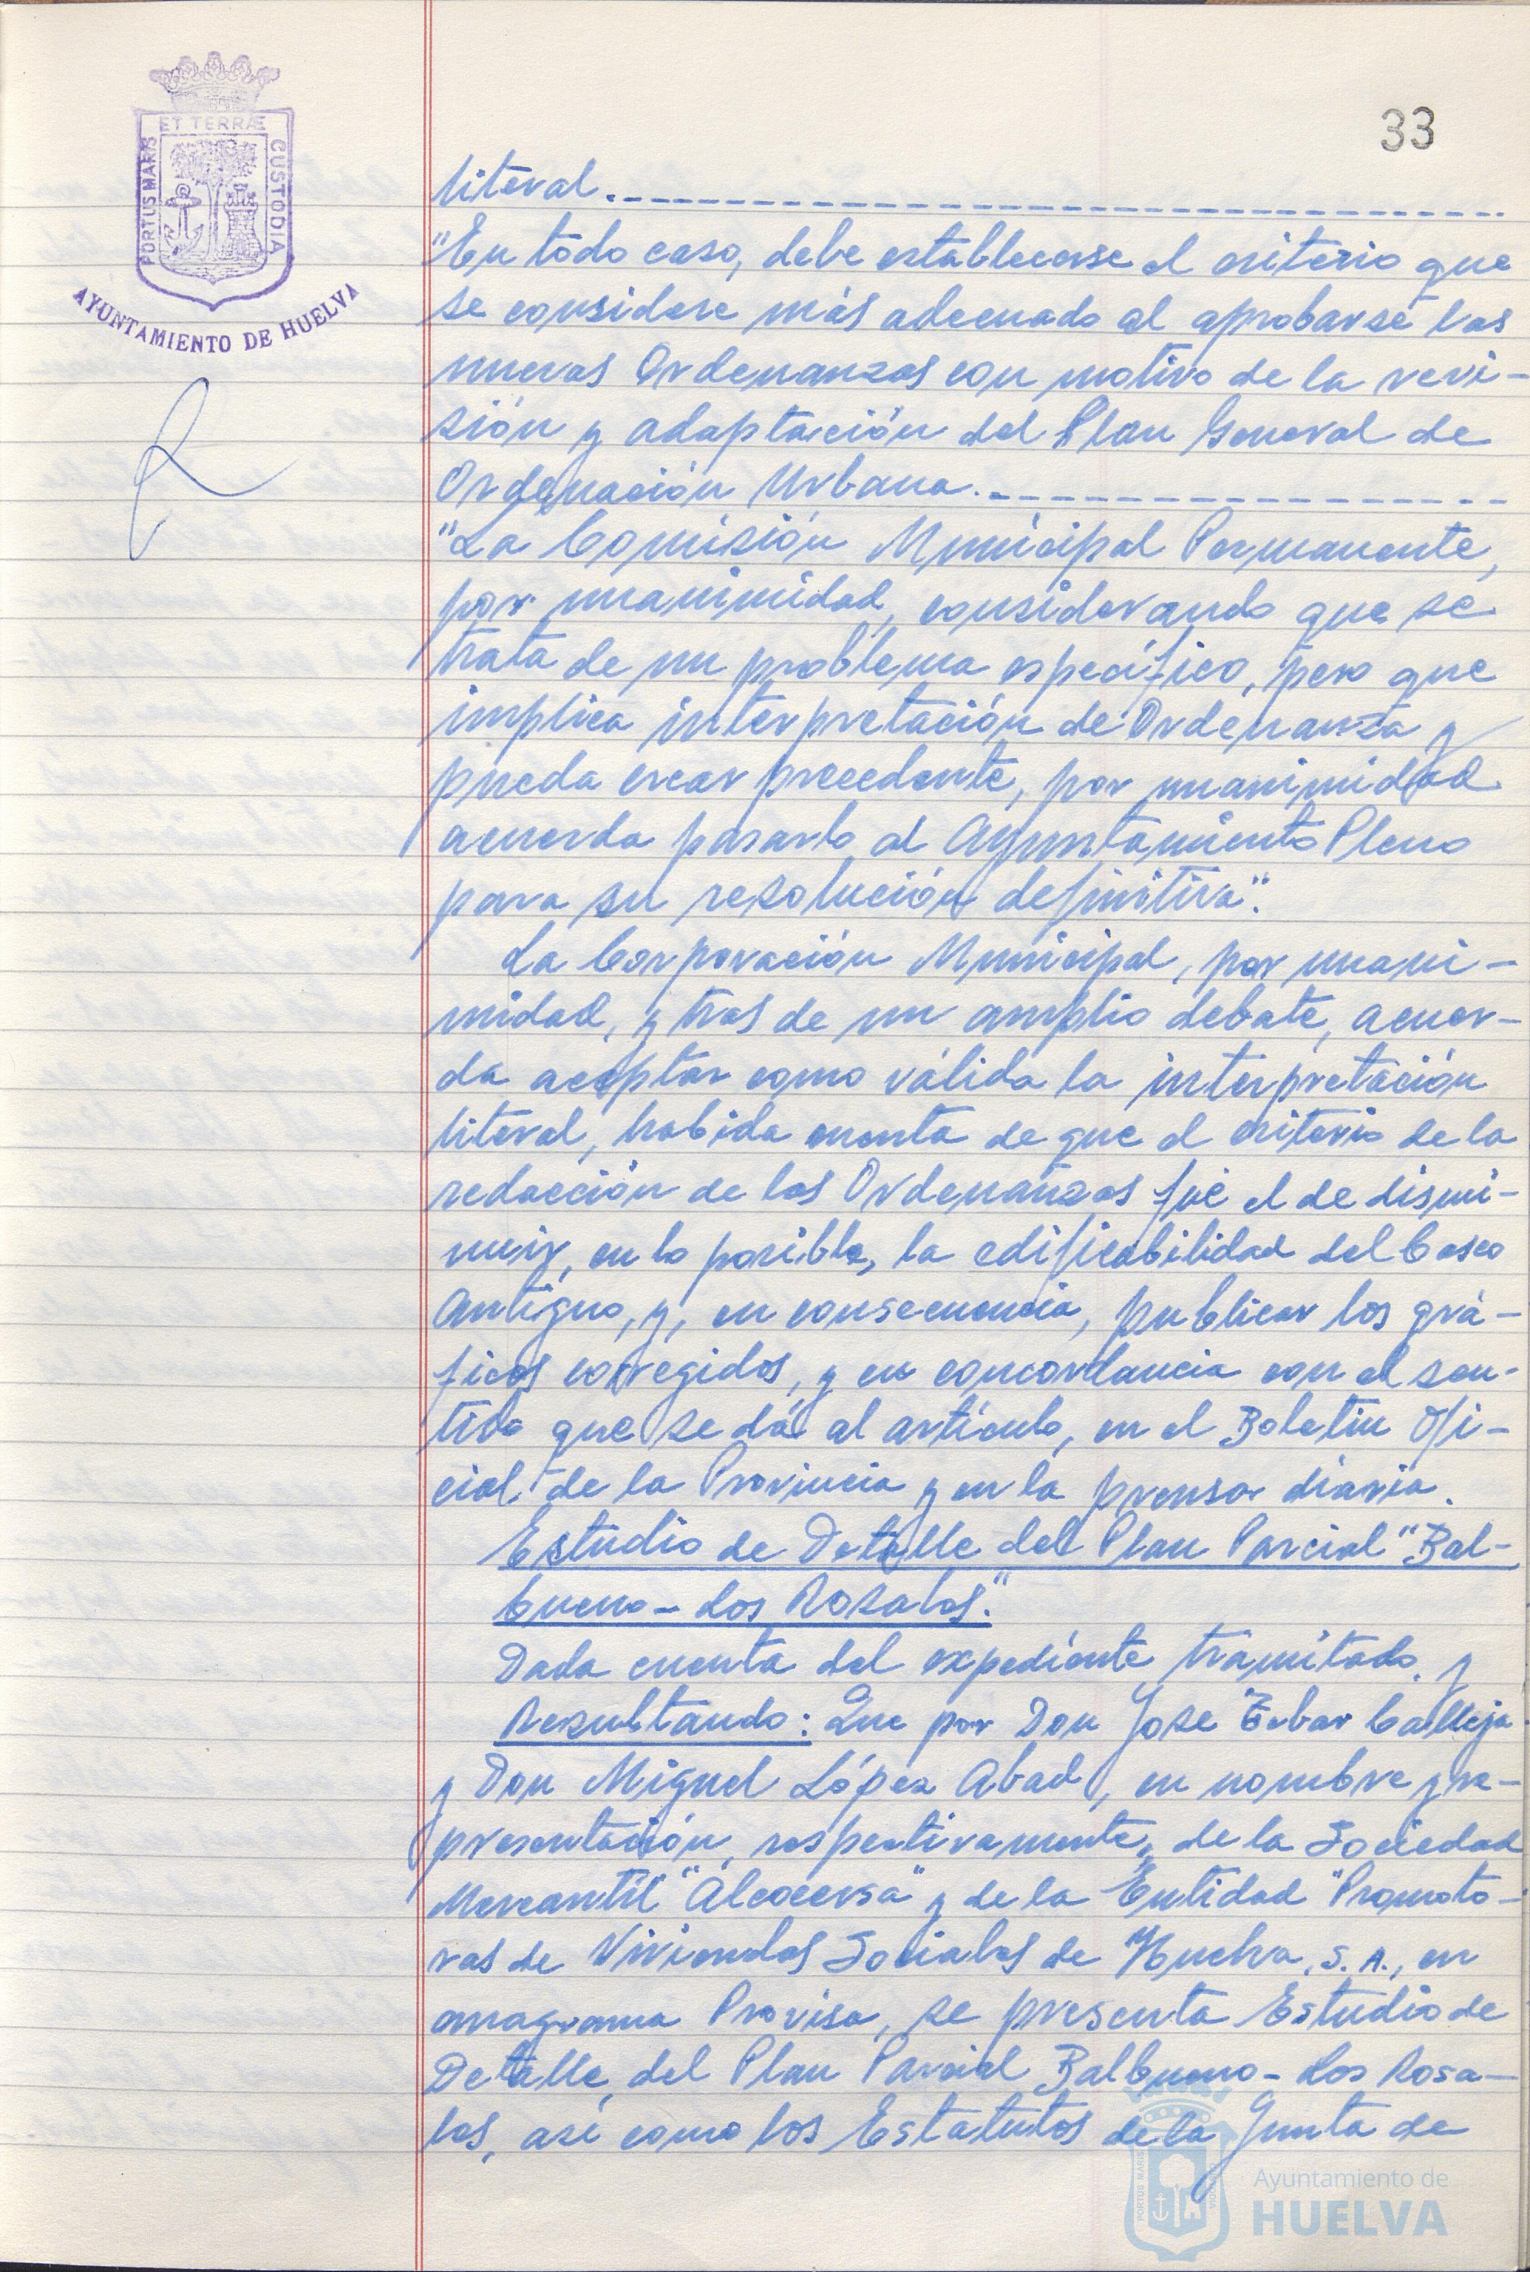 33
ET TERRÆ
PORTUS MARIS
CUSTODIA
AYUNTAMIENTO DE HUELVA
literal.
"En todo caso, debe establecerse el criterio que
se considere más adecuado al aprobarse las
nuevas Ordenanzas con motivo de la revi-
sión y adaptación del Plan General de
Ordenación Urbana.
"La Comisión Municipal Permanente,
por unanimidad, considerando que se
trata de un problema específico, pero que
implica interpretación de Ordenanza y
pueda crear precedente, por unanimidad
acuerda pasarlo al Ayuntamiento Pleno
para su resolución definitiva".
La Corporación Municipal, por unani-
midad, y tras de un amplio debate, acuer-
da aceptar como válida la interpretación
literal, habida cuenta de que el criterio de la
redacción de las Ordenanzas fué el de dismi-
nuir, en lo posible, la edificabilidad del Casco
Antiguo, y, en consecuencia, publicar los grá-
ficos corregidos, y en concordancia con el sen-
tido que se dá al artículo, en el Boletin Ofi-
cial de la Provincia y en la prensa diaria.
Estudio de Detalle del Plan Parcial "Bal-
bueno - Los Rosales."
Dada cuenta del expediente tramitado, y
Resultando: Que por Don Jose Tobar Calleja
y Don Miguel López Abad, en nombre y re-
presentación, respectivamente, de la Sociedad
Mercantil "Alcocersa" y de la Entidad "Promoto-
ras de Viviendas Sociales de Huelva, S. A., en
anagrama Provisa, se presenta Estudio de
Detalle del Plan Parcial Balbueno - Los Rosa-
les, así como los Estatutos de la Junta de
Ayuntamiento de
HUELVA